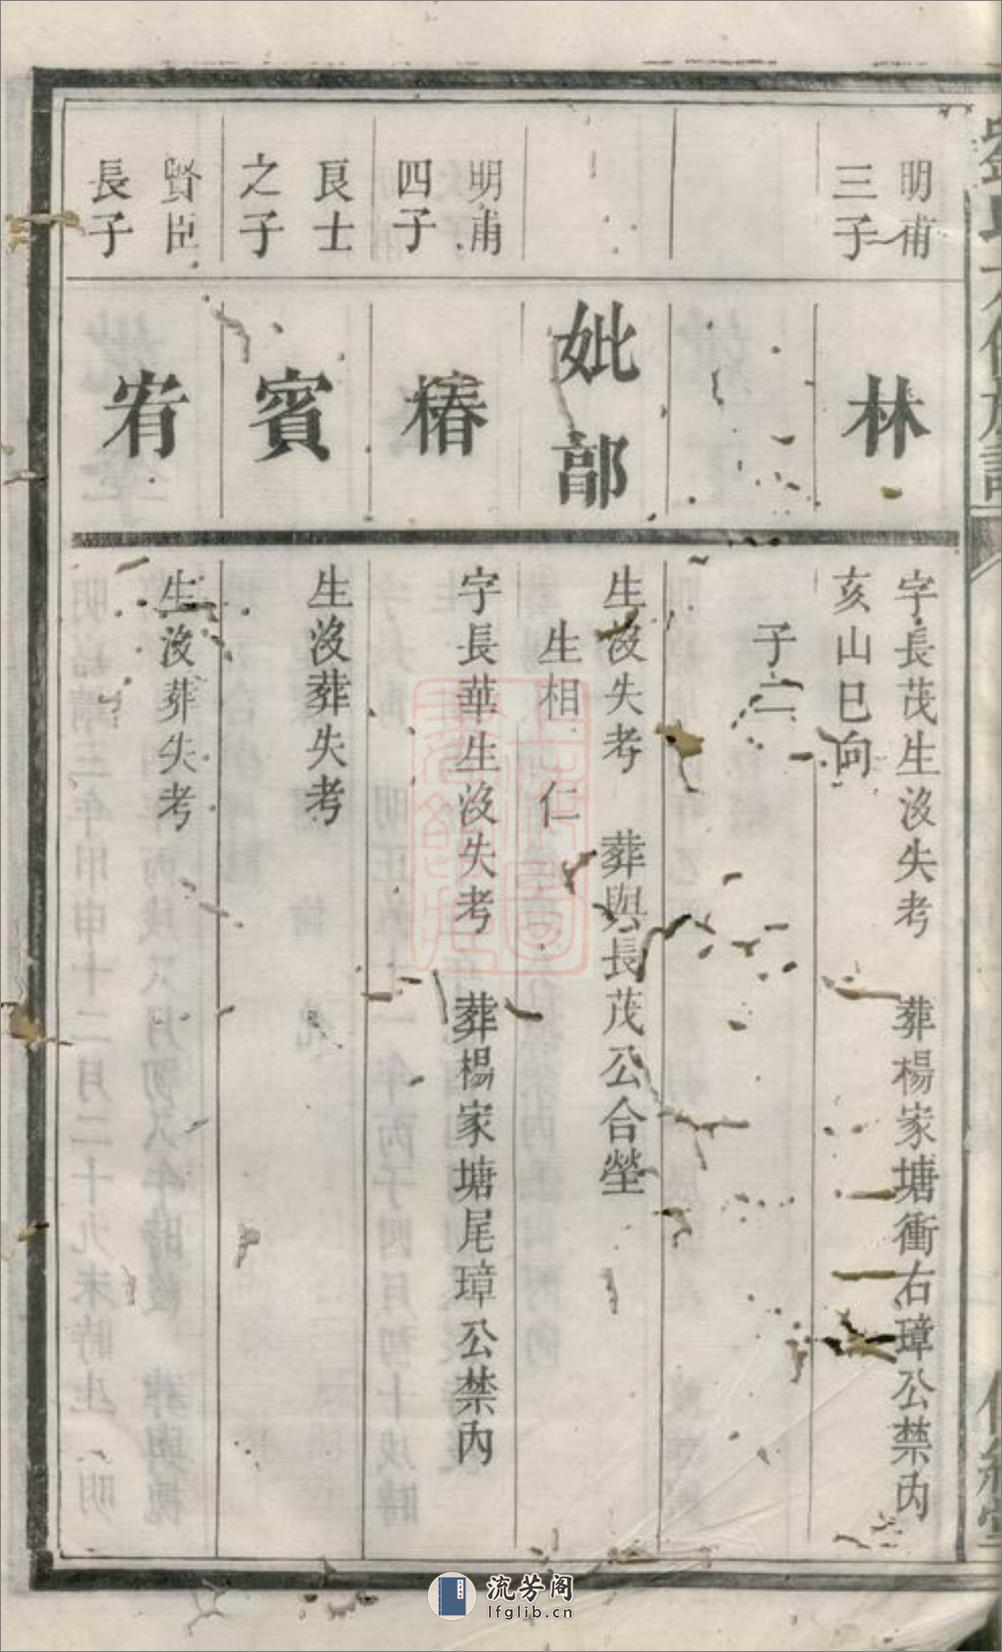 明甫
三子
林
字長茂生沒失考 葬楊家塘衝右璋公禁內
亥山巳向
子二
妣部
生沒失考 葬與長茂公合塋
生相 仁
明甫
四子
椿
字長華生沒失考 葬楊家塘尾璋公禁內
良士
之子
賓
生沒葬失考
賢臣
長子
宥
生沒葬失考
流芳阁
lfglib.cn